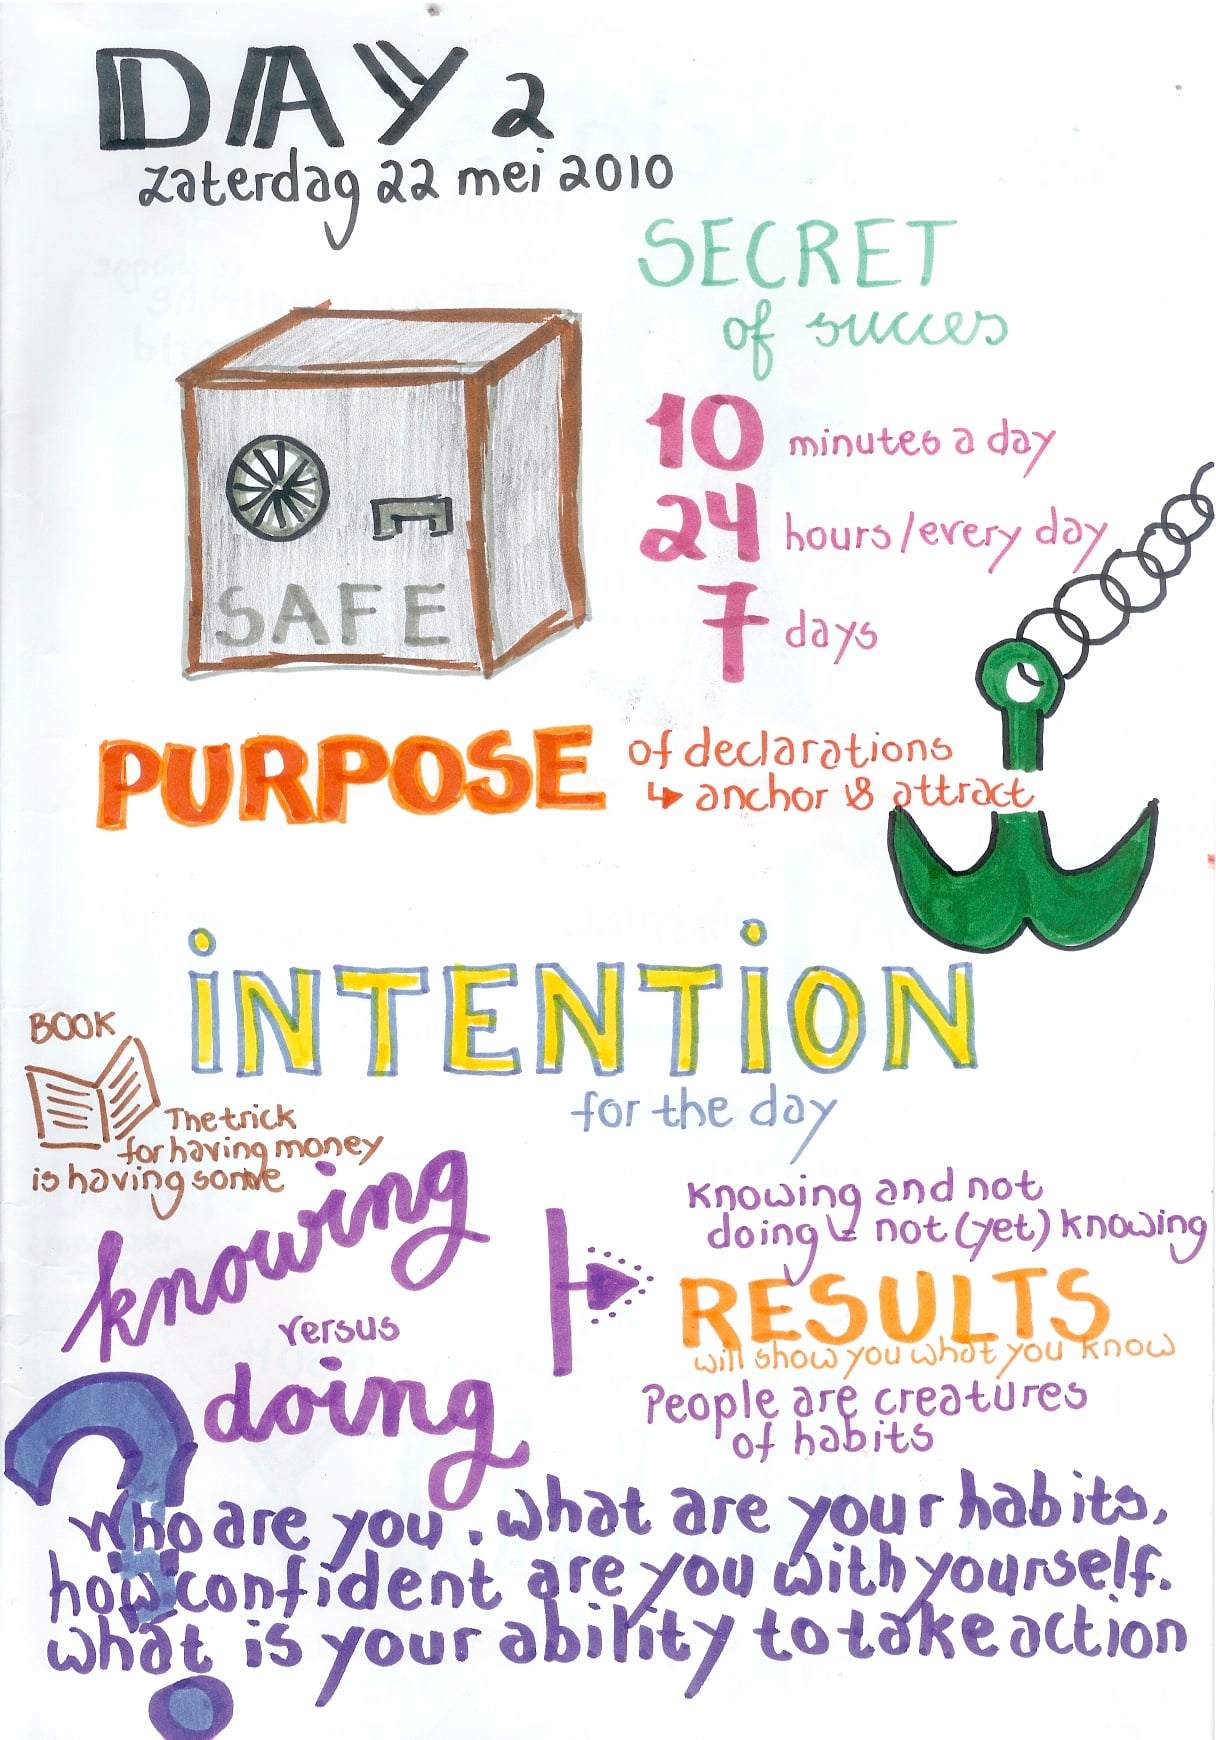 DAY 2
zaterdag 22 mei 2010
SECRET
of succes
10 minutes a day
24 hours/every day
7 days
SAFE
PURPOSE of declarations
↳ anchor & attract
INTENTION
for the day
BOOK
The trick
for having money
is having some
knowing
versus
doing
Knowing and not
doing = not (yet) knowing
RESULTS
will show you what you know
People are creatures
of habits
?
Who are you. What are your habits,
how confident are you with yourself.
what is your ability to take action